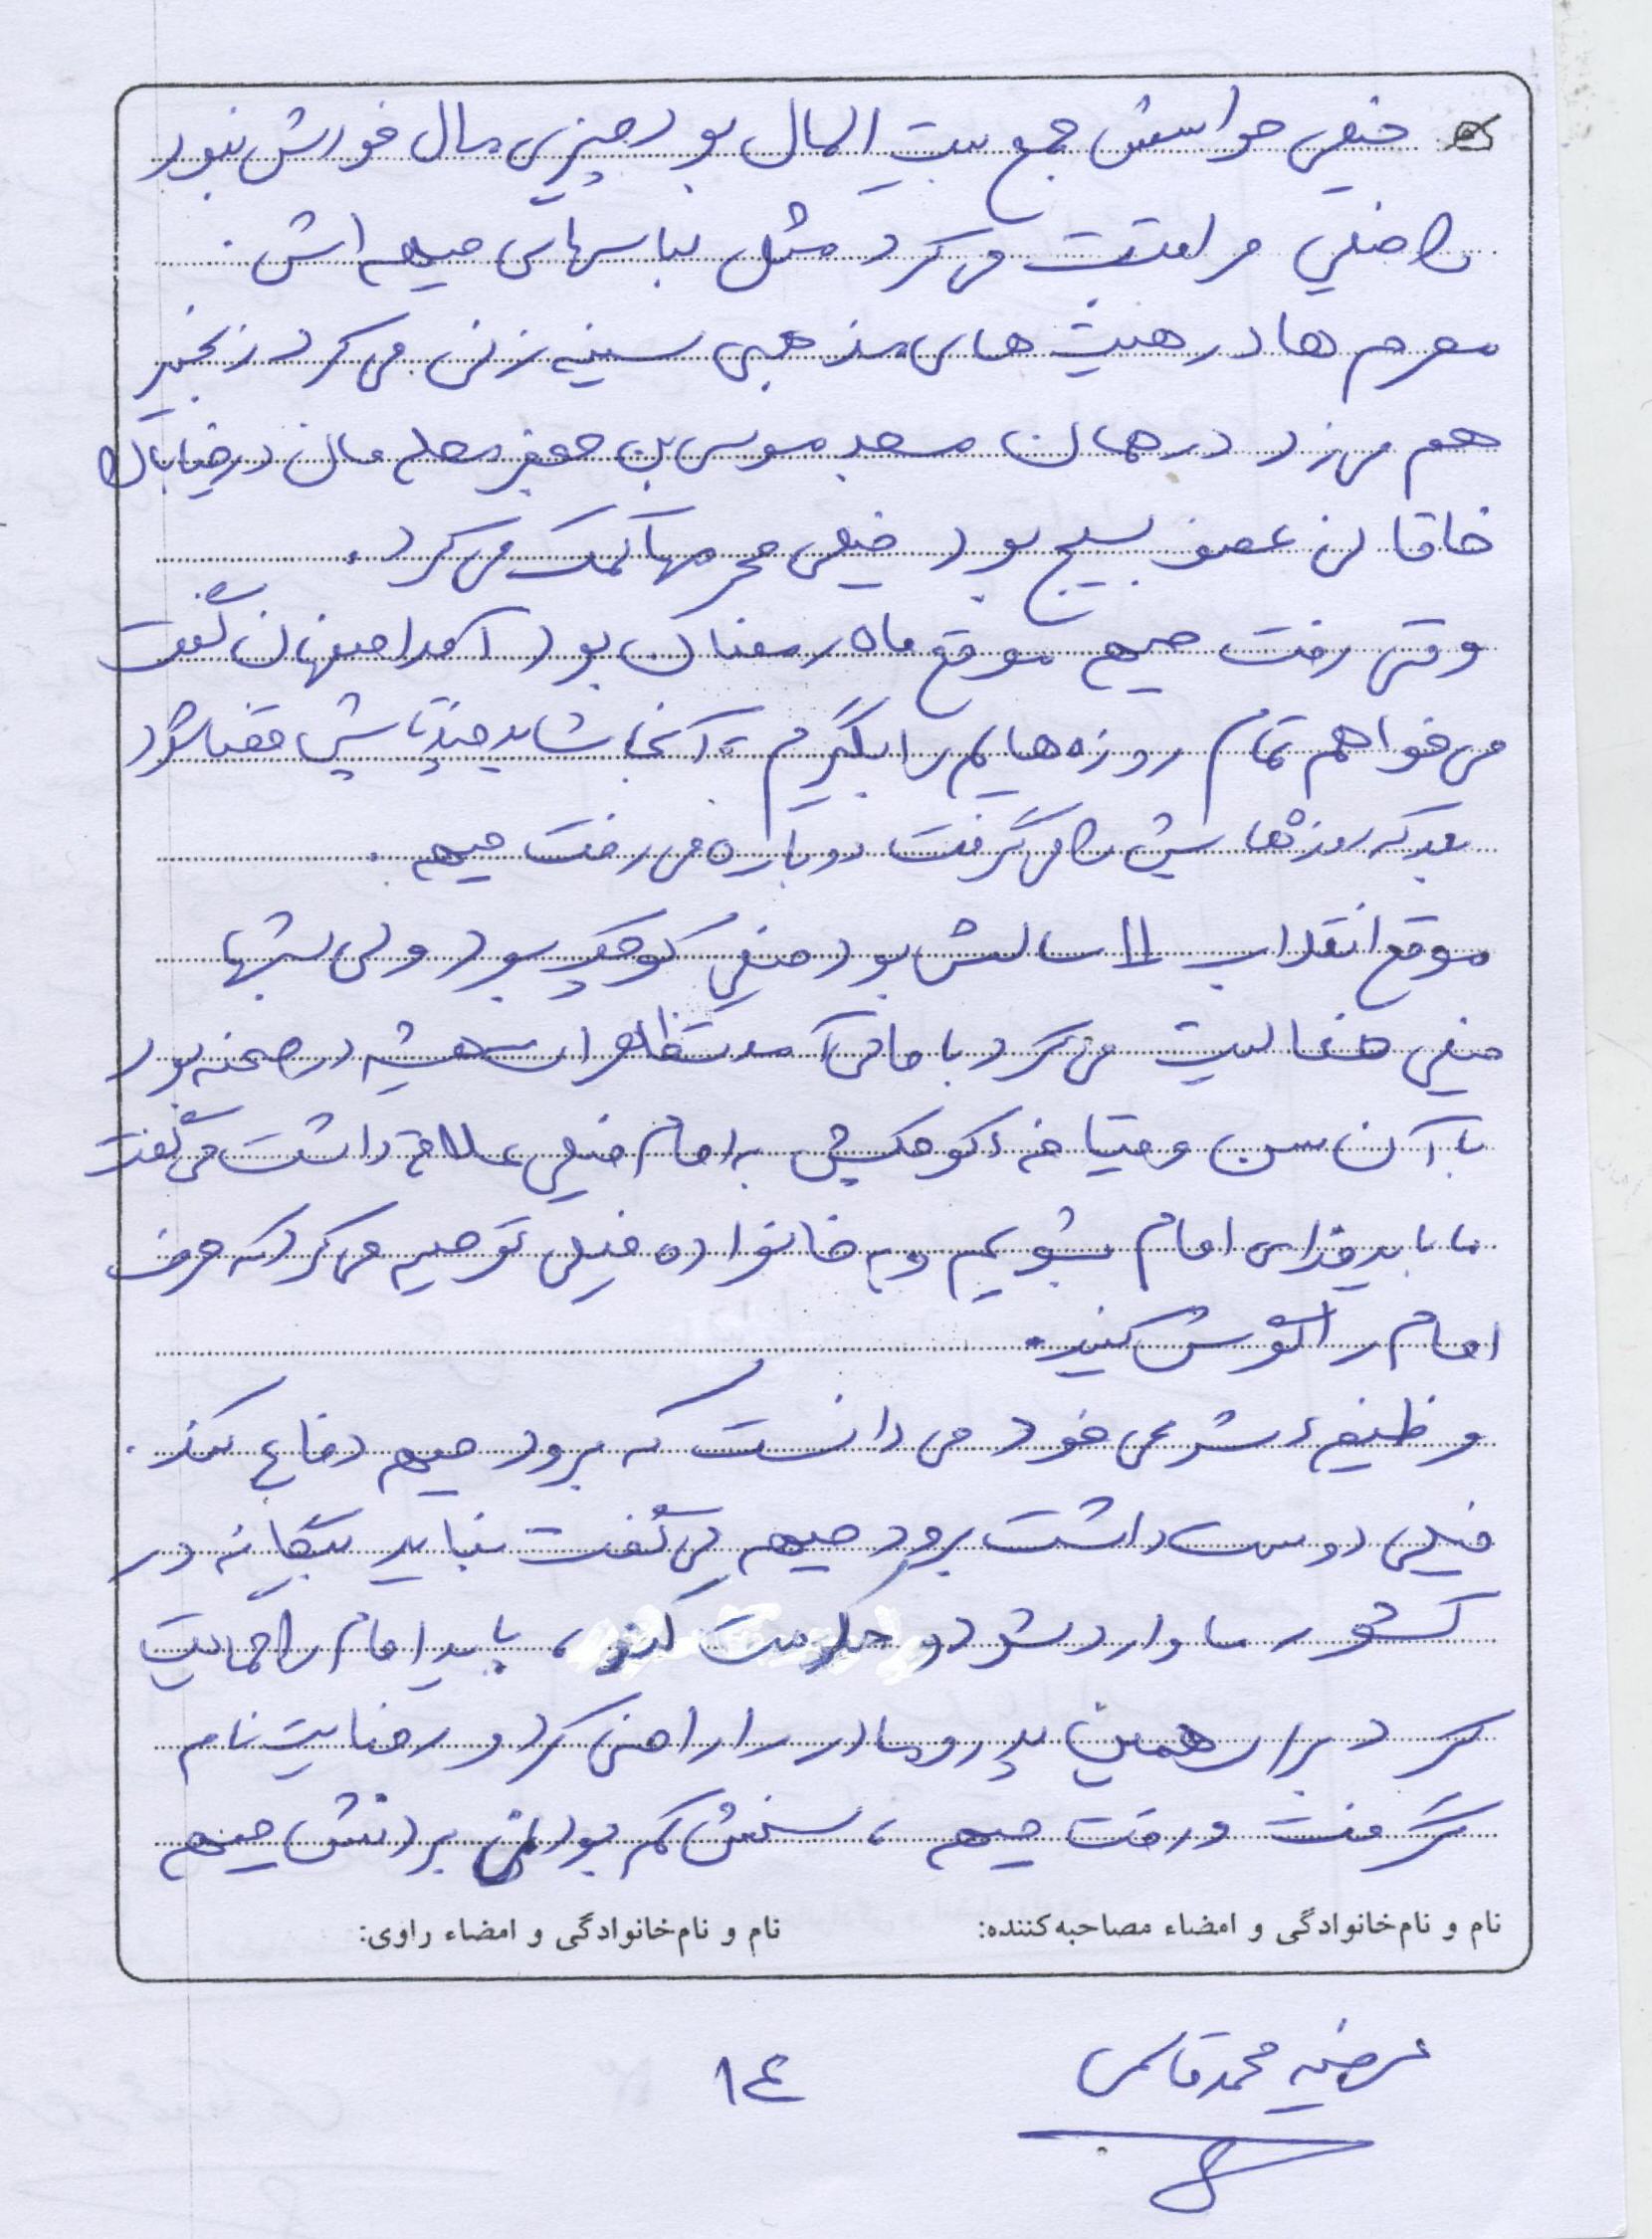 خیلی حواسش جمع بیت المال بود چیزی مال خودش نبود
را خیلی مراقبت می کرد مثل لباسهای جبهه اش.
محرم ها در هیئت های مذهبی سینه زنی می کرد زنجیر
هم می زد در همان مسجد موسی بن جعفر محله مان در خیابان
خاقانی عضو بسیج بود خیلی محرمها کمک می کرد.
وقتی رفت جبهه موقع ماه رمضان بود آمد اصفهان گفت
می خواهم تمام روزه هایم را بگیرم آنجا شاید چند تایش قضا شود
بعد که روزه هایش را می گرفت دوباره می رفت جبهه.
موقع انقلاب ۱۱ سالش بود خیلی کوچک بود ولی شبها
خیلی فعالیت می کرد با ما می آمد تظاهرات همیشه در صحنه بود
با آن سن و قیافهٔ کوچکش به امام خیلی علاقه داشت می گفت
ما باید فدای امام بشویم و به خانواده خیلی توصیه می کرد که حرف
امام را گوش کنید.
وظیفهٔ شرعی خود می دانست که برود جبهه دفاع کند.
خیلی دوست داشت برود جبهه می گفت نباید بیگانه در
کشور ما وارد شود و حکومت کند، باید امام را حمایت
کرد برای همین پدر و مادر را راضی کرد و رضایت نامه
گرفت و رفت جبهه، سنش کم بود نمی بردنش جبهه
نام و نام‌خانوادگی و امضاء مصاحبه‌کننده: نام و نام‌خانوادگی و امضاء راوی:
مرضیه محمدقاسمی
١٤